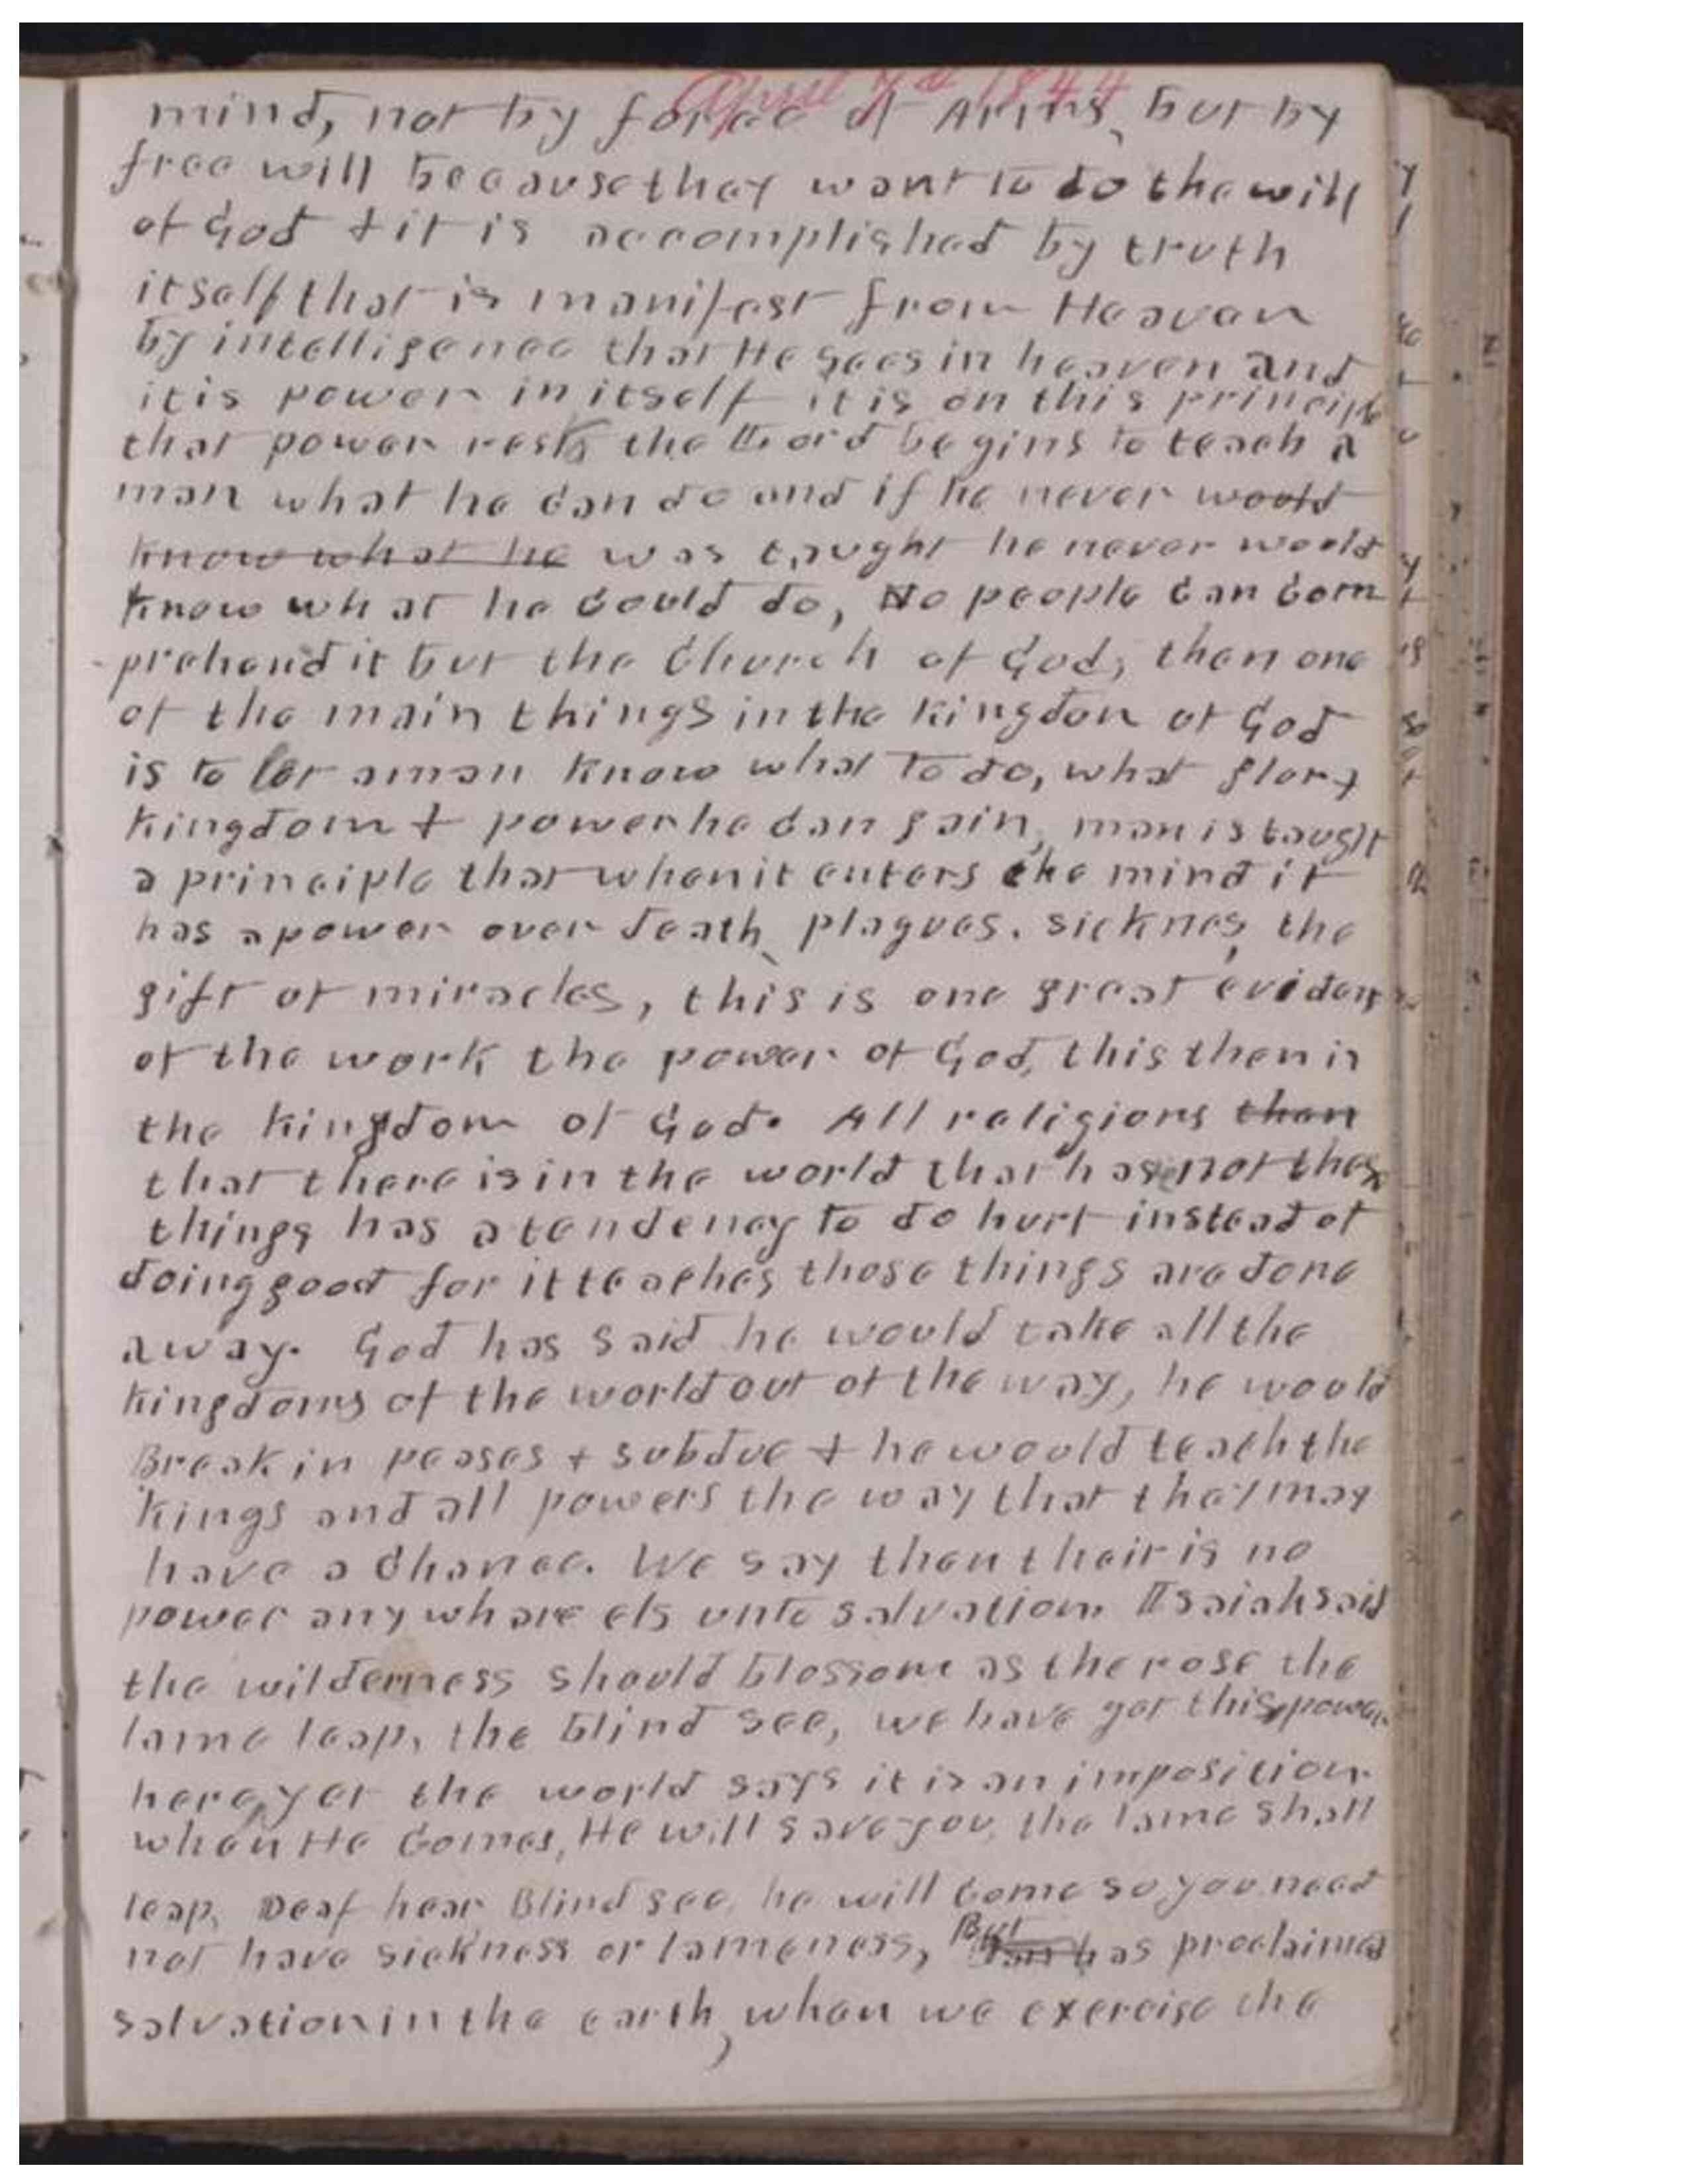 April 7th 1844
mind, not by forace of Arms, but by
free will because they want to do the will
of God + it is accomplished by truth
itself that is manifest from Heaven
by intelligence that He sees in heaven and
it is power in itself it is on this principle
that power rests the Lord begins to teach a
man what he can do and if he never would
know what he was taught he never would
know what he could do, No people can com
prehend it but the Church of God, then one
of the main things in the kingdon of God
is to let a man know what to do, what glory
kingdom + power he can gain, man is taught
a principle that when it enters the mind it
has a power over death, plagues. sicknes, the
gift of miracles, this is one great eviden
of the work the power of God, this then is
the kingdom of God. All religions than
that there is in the world that has not these
things has a tendency to do hurt instead of
doing good for it teaches those things are done
away. God has said he would take all the
kingdoms of the world out of the way, he would
Break in peases + subdue + he would teach the
kings and all powers the way that they may
have a chance. We say then their is no
power any whare els unto salvation. Isaiah said
the wilderness should blossom as the rose the
lame leap, the blind see, we have got this power
here, yet the world says it is an imposition
when He Comes, He will save you, the lame shall
leap, Deaf hear, Blind see, he will come so you need
not have sickness or lameness, But has proclaimed
salvation in the earth, when we exercise the